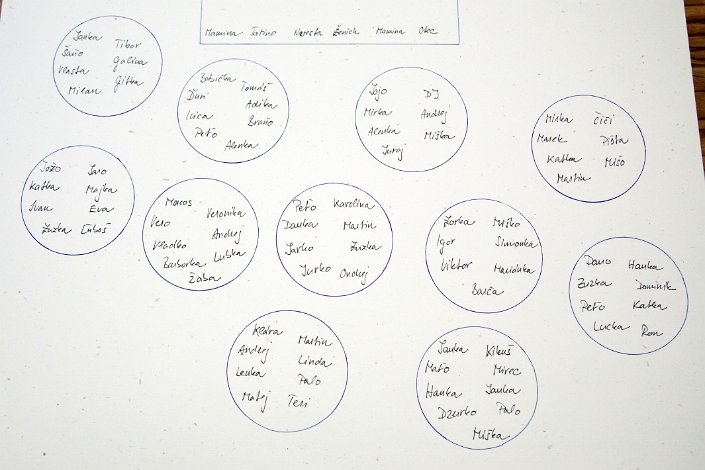 Mamina Tatino Nevesta Ženich Mamina Otec
Janka Tibor
Šaňo Galina
Vlasta Gitka
Milan
Babička Tomáš
Ďuri Adika
Luca Braňo
Peťo Alenka
Jojo DJ
Mirka Andrej
Alenka Miška
Juraj
Mirka Čiči
Marek Pišta
Katka Mišo
Martin
Jožo Jaro
Katka Majka
Ivan Eva
Zuzka Ľuboš
Marcos Veronika
Vero Andrej
Vladko Ľubka
Barborka
Žaba
Peťo Karolína
Danka Martin
Jarko Zuzka
Jurko Ondrej
Zorka Miško
Igor Simonka
Viktor Marianka
Barča
Dano Hanka
Zuzka Dominik
Peťo Katka
Lucka Ron
Martin
Andrej Linda
Lenka Palo
Matej Teri
Janka Kikuš
Maťo Mirec
Hanka Janka
Dzurko Palo
Miška